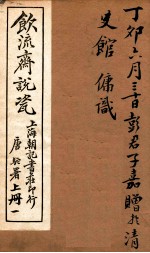 丁卯六月三十日彭君子嘉贈於清
史館 傭識
飲流齋說瓷
上海朝記書莊印行
唐 署 上冊一